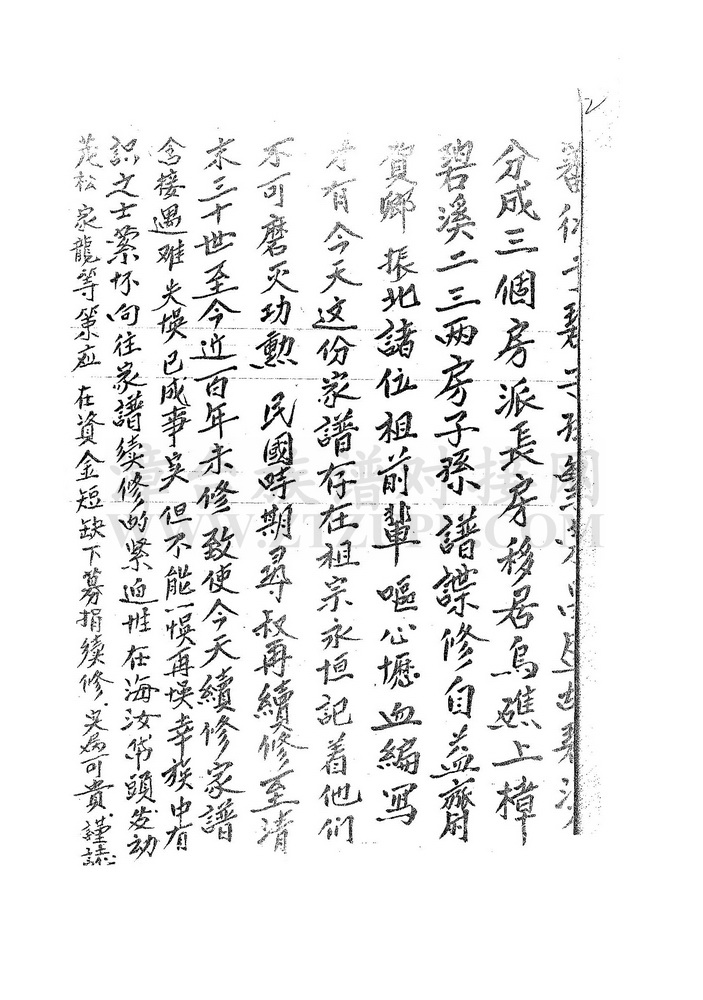 2
分成三個房派長房移居烏礁上樟
碧溪二三兩房子孫譜諜修自益齋
賀鄉振北諸位祖前輩嘔心壢血編写
才有今天这份家譜存在祖宗永恒記着他们
不可磨灭功勲 民國時期尋叔再續修至清
末三十世至今近一百年未修致使今天續修家譜
含接遇难失悞已成事实但不能一悞再悞幸族中有
識之士縈怀向往家譜续修的紧迫性在海汝带頭发动
茂松家龍等策应在資金短缺下募捐续修实为可貴謹誌
漳台族谱对接网
WWW.ZTZUPU.COM